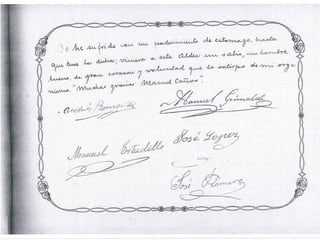 he sufrido con un padecimiento de estomago, hasta
que tuve la dicha, viniera a esta Aldea un sabio, un hombre
bueno, de gran corazon y voluntad que lo extirpo de mi orga
nismo. "Muchas gracias Manuel
Manuel Grimaldi
Manuel Estudillo José Lopez
José Romero